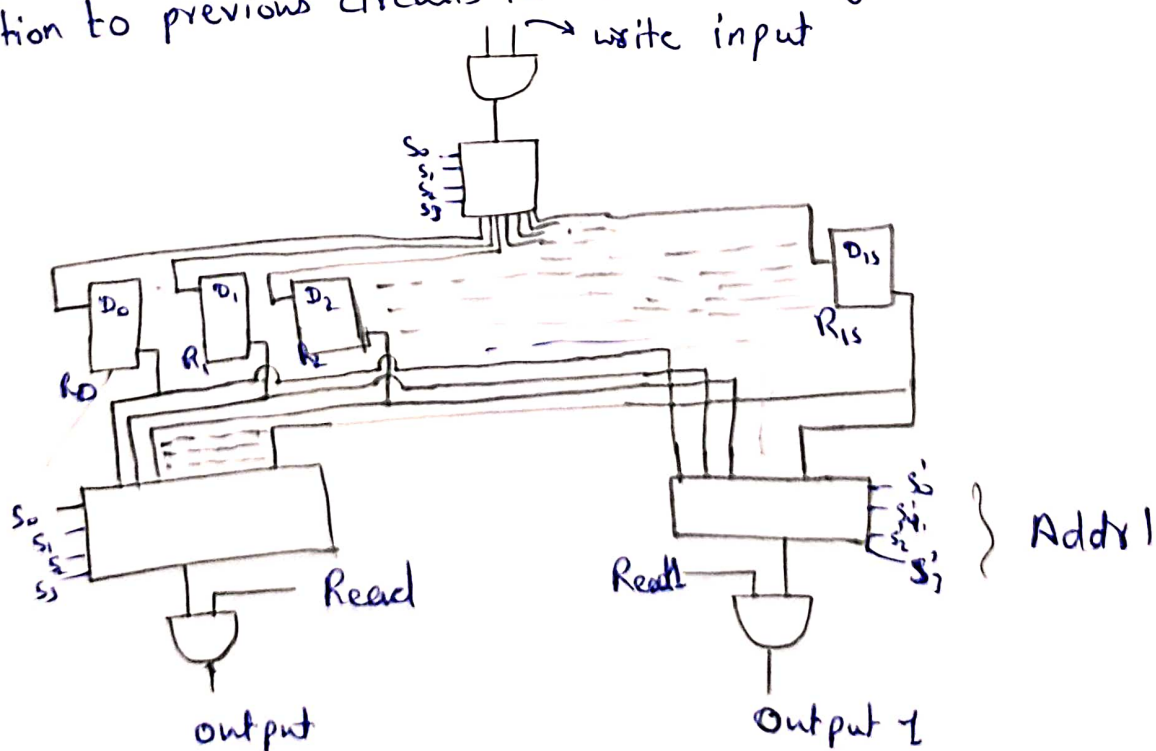 tion to previous circuits
write input
S0
S1
S2
S3
D0
D1
D2
D15
R0
R1
R2
R15
S0
S1
S2
S3
Read
Read1
S0'
S1'
S2'
S3'
Addr1
output
Output 1